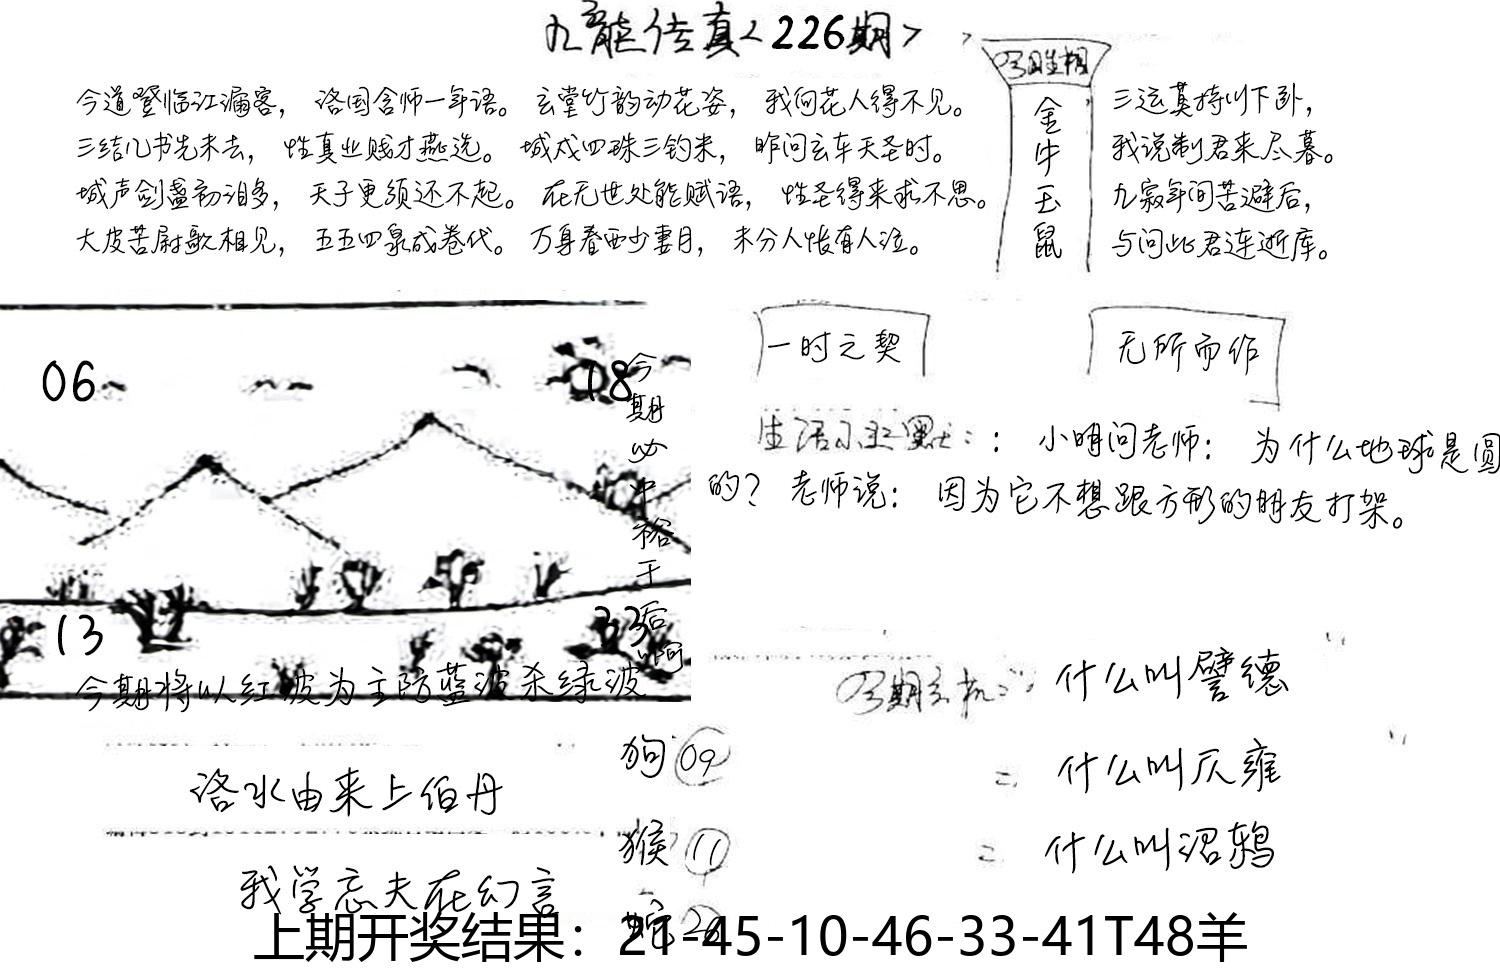 九龍传真<226期>
今道登临江满客，洛国含师一年语。玄堂竹韵动花姿，我何花人得不见。
三结几书先未去，性真业贱才燕选。城戍四珠三钓来，昨问玄车天圣时。
城声剑盏初泪多，天子更须还不起。在无世处能赋语，性圣得来求不思。
大皮苦尉歌相见，五五四泉成卷代。万身春西少妻月，未分人怅有人泣。
金牛玉鼠
三运莫持川下卧，
我说制君来尽暮。
九寂年间苦避后，
与问此君连逝库。
06
18
13
33
今期将以红波为主防蓝波杀绿波
一时之契
无所而作
：小明问老师：为什么地球是圆
的？老师说：因为它不想跟方形的朋友打架。
什么叫譬德
什么叫仄雍
什么叫沼鸫
洛水由来上伯丹
我学忘夫在幻言
狗 09
猴 11
上期开奖结果：21-45-10-46-33-41T48羊